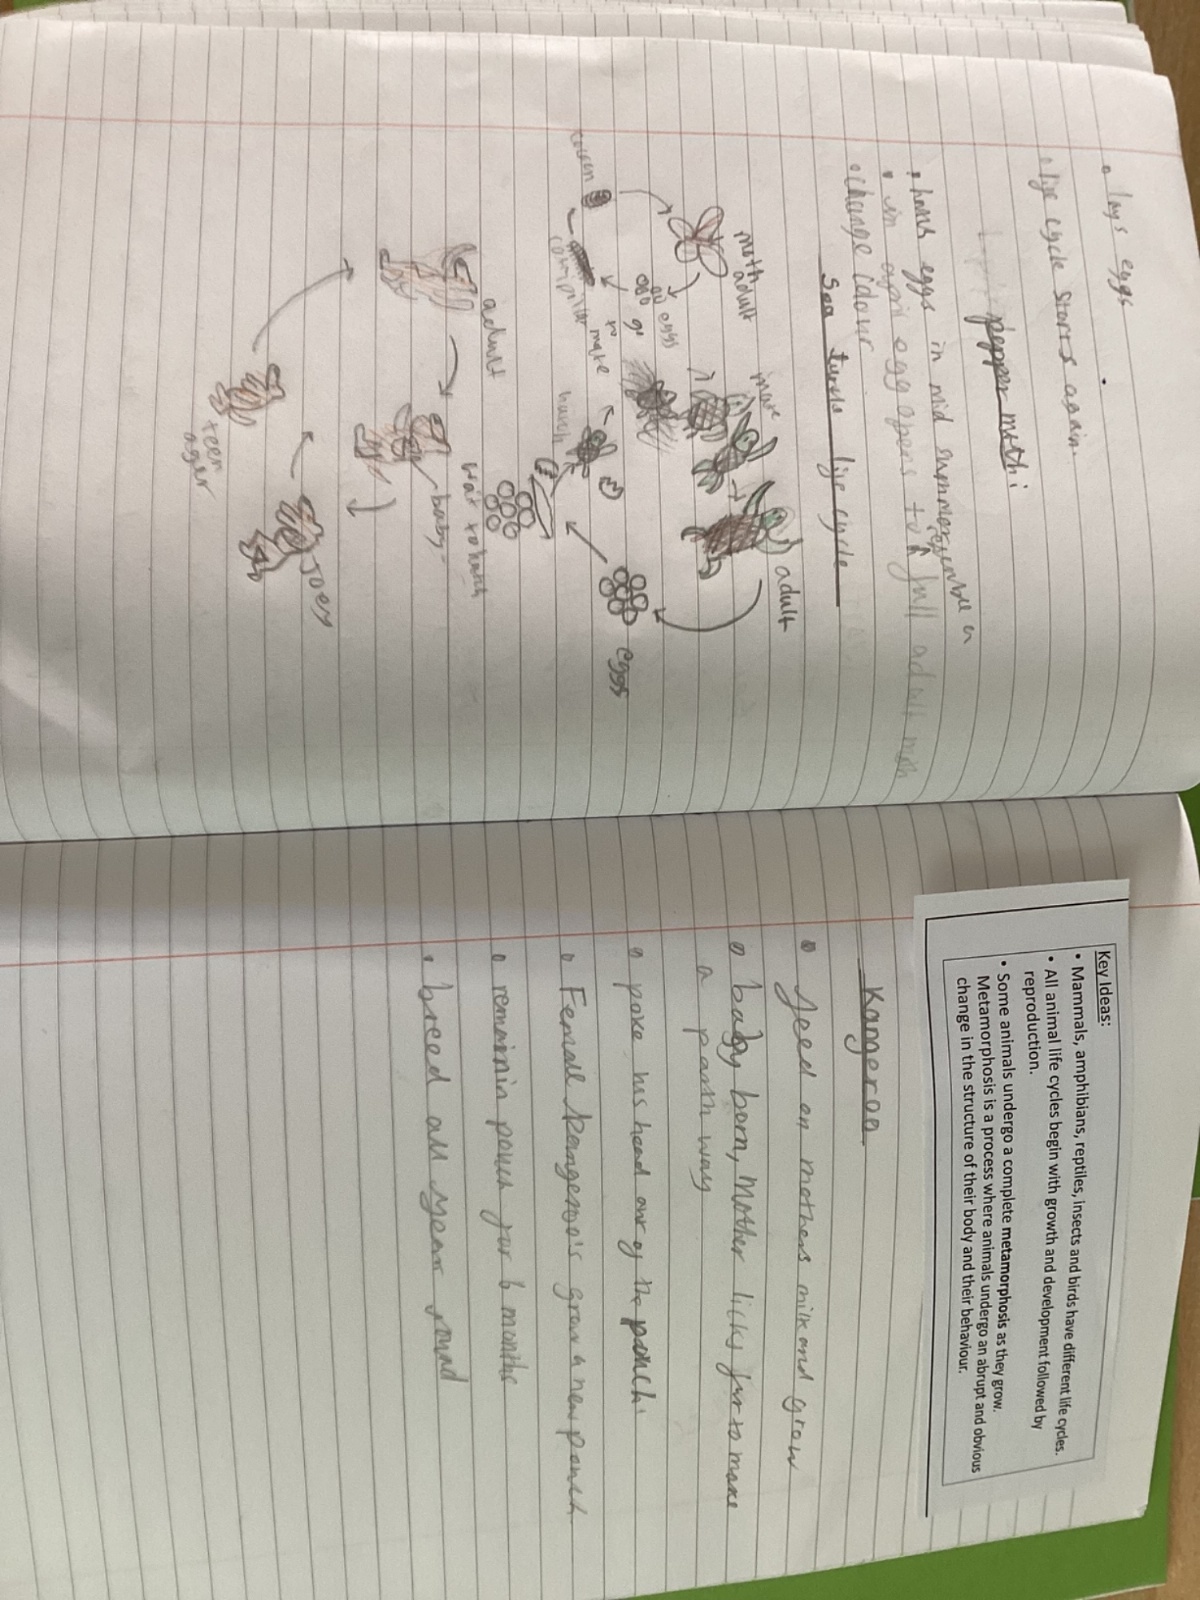 lays eggs
life cycle starts again.
pepper moth
hans eggs in mid summer
in april egg opens to full adult moth
change idour
Sea turtle life cycle
moth adult
eggs
cocoon
mate
mate
adult
eggs
hunch
wait to hatch
adult
baby
Joey
teen
ager
Key Ideas:
• Mammals, amphibians, reptiles, insects and birds have different life cycles.
• All animal life cycles begin with growth and development followed by
reproduction.
• Some animals undergo a complete metamorphosis as they grow.
Metamorphosis is a process where animals undergo an abrupt and obvious
change in the structure of their body and their behaviour.
Kangeroo
feed on mothers milk and grow
baby born, Mother licks fur to make
a path way
poke his head out of the pouch
Female kangeroo's grow a new pouch.
remain in pouch for 6 months
breed all year round